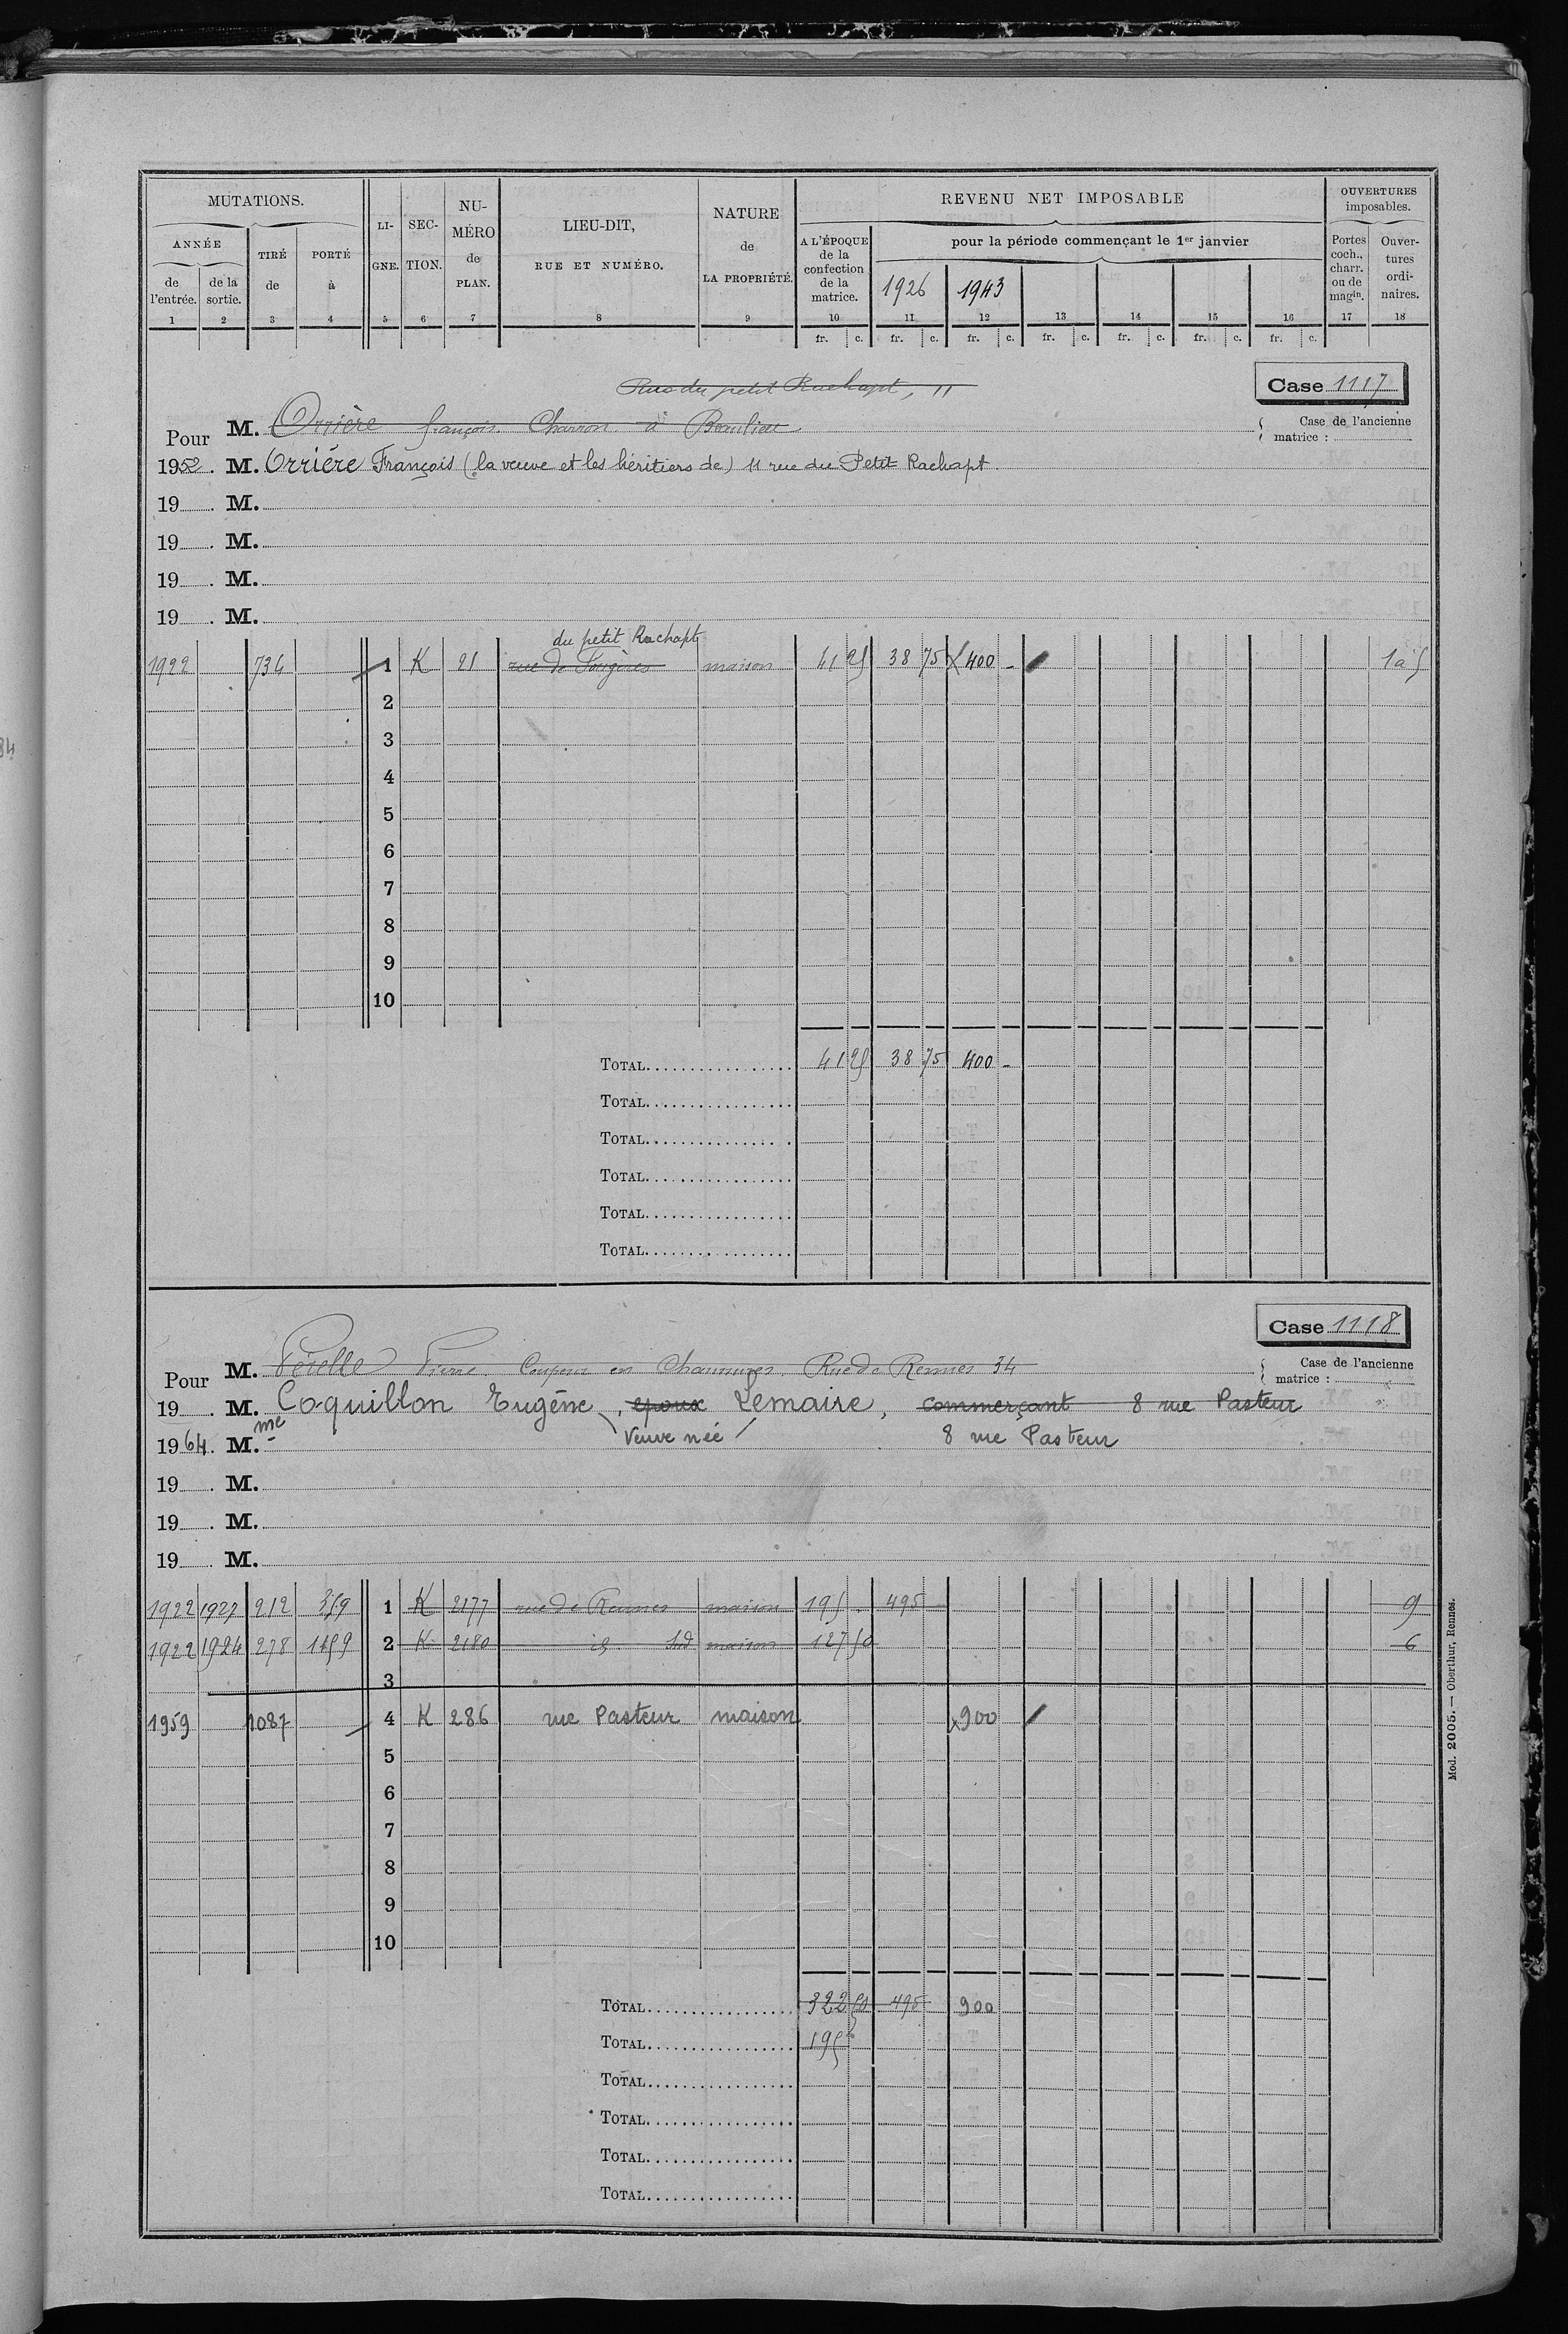 MUTATIONS.
ANNÉE
de l'entrée.
de la sortie.
TIRÉ de
PORTÉ à
LI-GNE.
SEC-TION.
NU-MÉRO de PLAN.
LIEU-DIT,
RUE ET NUMÉRO.
NATURE de LA PROPRIÉTÉ.
REVENU NET IMPOSABLE
A L'ÉPOQUE de la confection de la matrice.
pour la période commençant le 1er janvier
1926 1943
OUVERTURES imposables.
Portes coch., charr. ou de magin.
Ouver-tures ordi-naires.
1 2 3 4 5 6 7 8 9 10 11 12 13 14 15 16 17 18
fr. c. fr. c. fr. c. fr. c. fr. c. fr. c. fr. c.
Rue du petit Rachapt, 11
Case 1117
Pour M. Orrière françois Charron à Beaulieu
Case de l'ancienne matrice :
1952. M. Orrière François (la veuve et les héritiers de) 11 rue du Petit Rachapt.
19 . M.
19 . M.
19 . M.
19 . M.
du petit Rachapt
1922 736 1 K 21 rue de Fougères maison 41 25 38 75 400 - 1 à 5
2
3
4
5
6
7
8
9
10
TOTAL 41 25 38 75 400 -
TOTAL
TOTAL
TOTAL
TOTAL
TOTAL
Case 1118
Pour M. Pierre Coupeur en Chaussures Rue de Rennes 34
Case de l'ancienne matrice :
19 . M. Coquillon Eugène, époux Lemaire, commerçant 8 rue Pasteur
1964. M.me - Veuve née 8 rue Pasteur
19 . M.
19 . M.
19 . M.
1922 1927 212 359 1 K 2177 rue de Rennes maison 195 495 9
1922 1924 278 1159 2 K 2180 id maison 127 50 6
3
1959 1087 4 K 286 rue Pasteur maison 900
5
6
7
8
9
10
TOTAL 322 50 495 900
TOTAL 195
TOTAL
TOTAL
TOTAL
TOTAL
Mod. 2005. — Oberthur, Rennes.